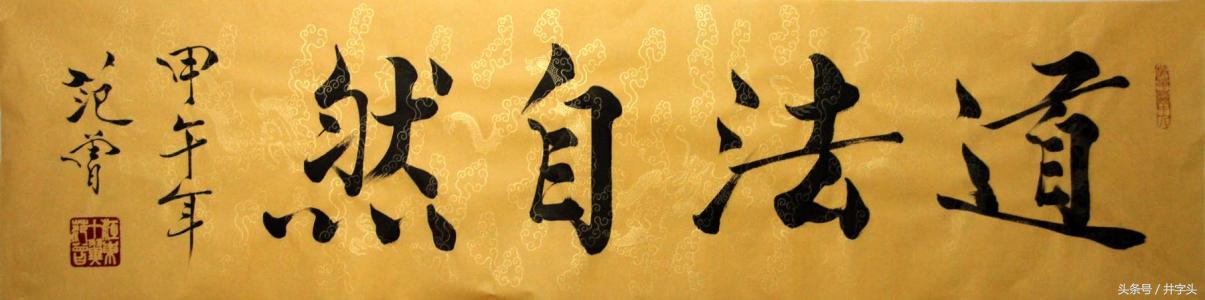 道法自然
甲午年
范曾
头条号 / 井字头